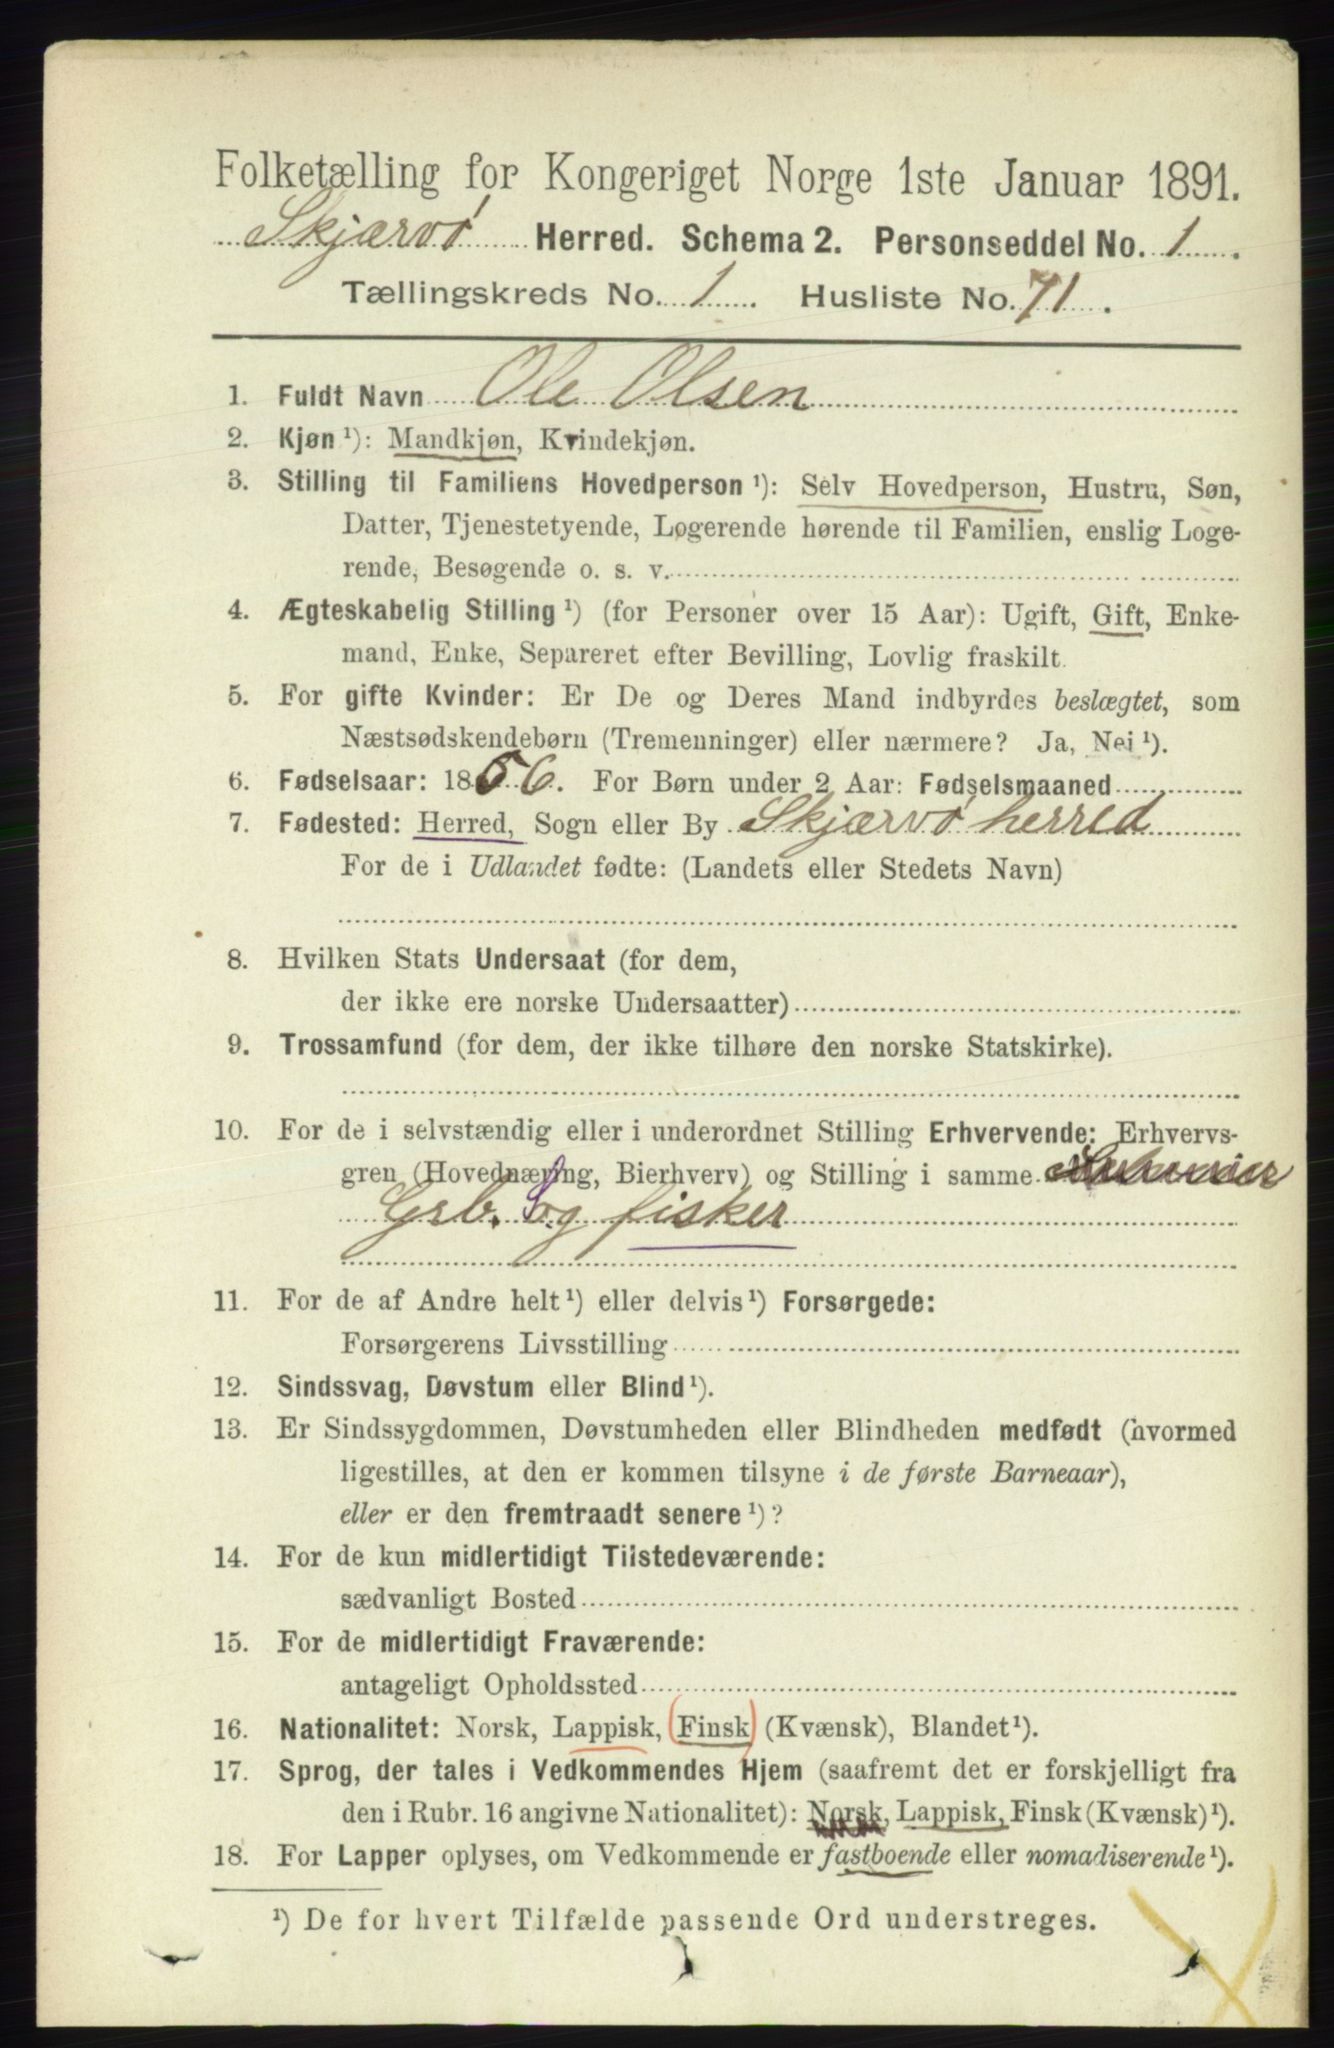 Folketælling for Kongeriget Norge 1ste Januar 1891.
Skjærvø Herred. Schema 2. Personseddel No. 1.
Tællingskreds No. 1. Husliste No. 71.
1. Fuldt Navn Ole Olsen
2. Kjøn ¹): Mandkjøn, Kvindekjøn.
3. Stilling til Familiens Hovedperson ¹): Selv Hovedperson, Hustru, Søn,
Datter, Tjenestetyende, Logerende hørende til Familien, enslig Loge-
rende, Besøgende o. s. v.
4. Ægteskabelig Stilling ¹) (for Personer over 15 Aar): Ugift, Gift, Enke-
mand, Enke, Separeret efter Bevilling, Lovlig fraskilt.
5. For gifte Kvinder: Er De og Deres Mand indbyrdes beslægtet, som
Næstsødskendebørn (Tremenninger) eller nærmere? Ja, Nei ¹).
6. Fødselsaar: 1856. For Børn under 2 Aar: Fødselsmaaned
7. Fødested: Herred, Sogn eller By Skjærvø herred
For de i Udlandet fødte: (Landets eller Stedets Navn)
8. Hvilken Stats Undersaat (for dem,
der ikke ere norske Undersaatter)
9. Trossamfund (for dem, der ikke tilhøre den norske Statskirke).
10. For de i selvstændig eller i underordnet Stilling Erhvervende: Erhvervs-
gren (Hovednæring, Bierhverv) og Stilling i samme
Grb. S. og fisker
11. For de af Andre helt ¹) eller delvis ¹) Forsørgede:
Forsørgerens Livsstilling
12. Sindssvag, Døvstum eller Blind ¹).
13. Er Sindssygdommen, Døvstumheden eller Blindheden medfødt (hvormed
ligestilles, at den er kommen tilsyne i de første Barneaar),
eller er den fremtraadt senere ¹)?
14. For de kun midlertidigt Tilstedeværende:
sædvanligt Bosted
15. For de midlertidigt Fraværende:
antageligt Opholdssted
16. Nationalitet: Norsk, Lappisk, (Finsk) (Kvænsk), Blandet ¹).
17. Sprog, der tales i Vedkommendes Hjem (saafremt det er forskjelligt fra
den i Rubr. 16 angivne Nationalitet): Norsk, Lappisk, Finsk (Kvænsk) ¹).
18. For Lapper oplyses, om Vedkommende er fastboende eller nomadiserende ¹).
¹) De for hvert Tilfælde passende Ord understreges.